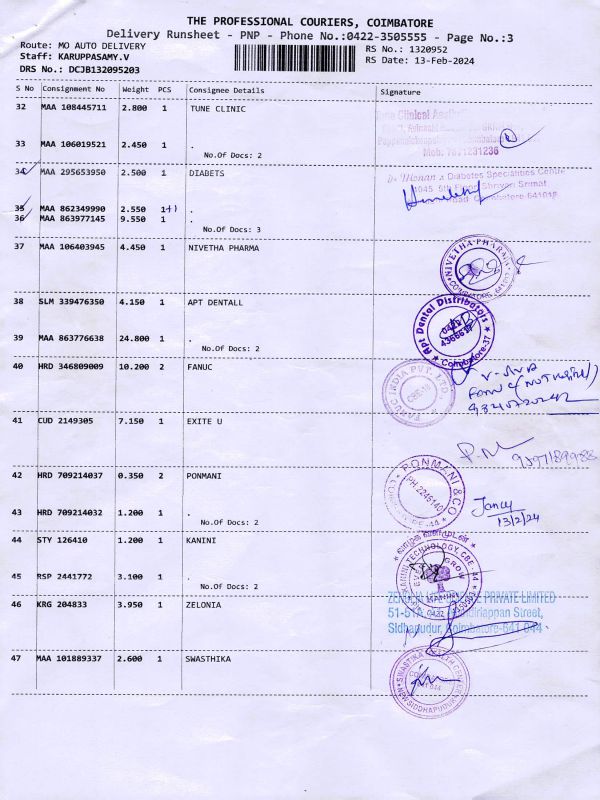 THE PROFESSIONAL COURIERS, COIMBATORE
Delivery Runsheet - PNP - Phone No.:0422-3505555 - Page No.:3
Route: MO AUTO DELIVERY
Staff: KARUPPASAMY.V
DRS No.: DCJB132095203
RS No.: 1320952
RS Date: 13-Feb-2024
S No Consignment No Weight PCS Consignee Details Signature
32 MAA 108445711 2.800 1 TUNE CLINIC
33 MAA 106019521 2.450 1 .
No.Of Docs: 2
Mob: 7871231236
34 MAA 295653950 2.500 1 DIABETS
Dr Mohan's Diabetes Specialities Centre
35 MAA 862349990 2.550 1+1 .
36 MAA 863977145 9.550 1 .
No.Of Docs: 3
37 MAA 106403945 4.450 1 NIVETHA PHARMA
NIVETHA PHARMA
38 SLM 339476350 4.150 1 APT DENTALL
Apt Dental Distributors
0422
Coimbatore-37
39 MAA 863776638 24.800 1 .
No.Of Docs: 2
40 HRD 346809009 10.200 2 FANUC
FANUC INDIA PVT. LTD.
41 CUD 2149305 7.150 1 EXITE U
9597189988
42 HRD 709214037 0.350 2 PONMANI
PONMANI & CO
PH.2245140
43 HRD 709214032 1.200 1 .
No.Of Docs: 2
Jancy
13/2/24
44 STY 126410 1.200 1 KANINI
வாழ்க வளமுடன்
KANINI TECHNOLOGY, CBE-44
45 RSP 2441772 3.100 1 .
No.Of Docs: 2
46 KRG 204833 3.950 1 ZELONIA
PRIVATE LIMITED
Street,
Sidhapudur, Coimbatore-641 044
47 MAA 101889337 2.600 1 SWASTHIKA
NEW SIDDHAPUDUR